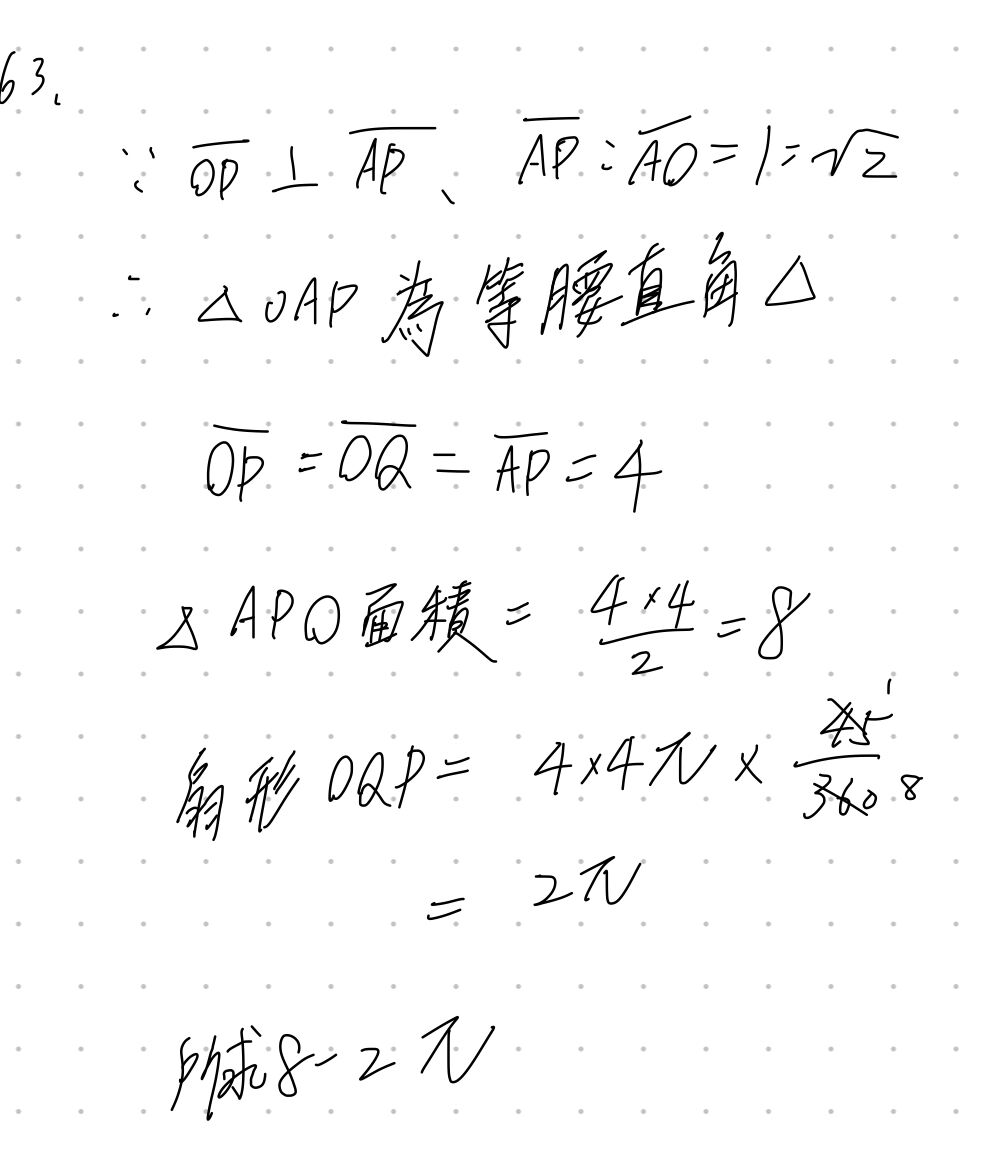 63.
∵ OP ⊥ AP、 AP : AO = 1 = √2
∴ △OAP為等腰直角△
OP = OQ = AP = 4
△APO面積 = 4×4/2 = 8
扇形OQP = 4×4π × 45/360 1 8
= 2π
所求8-2π